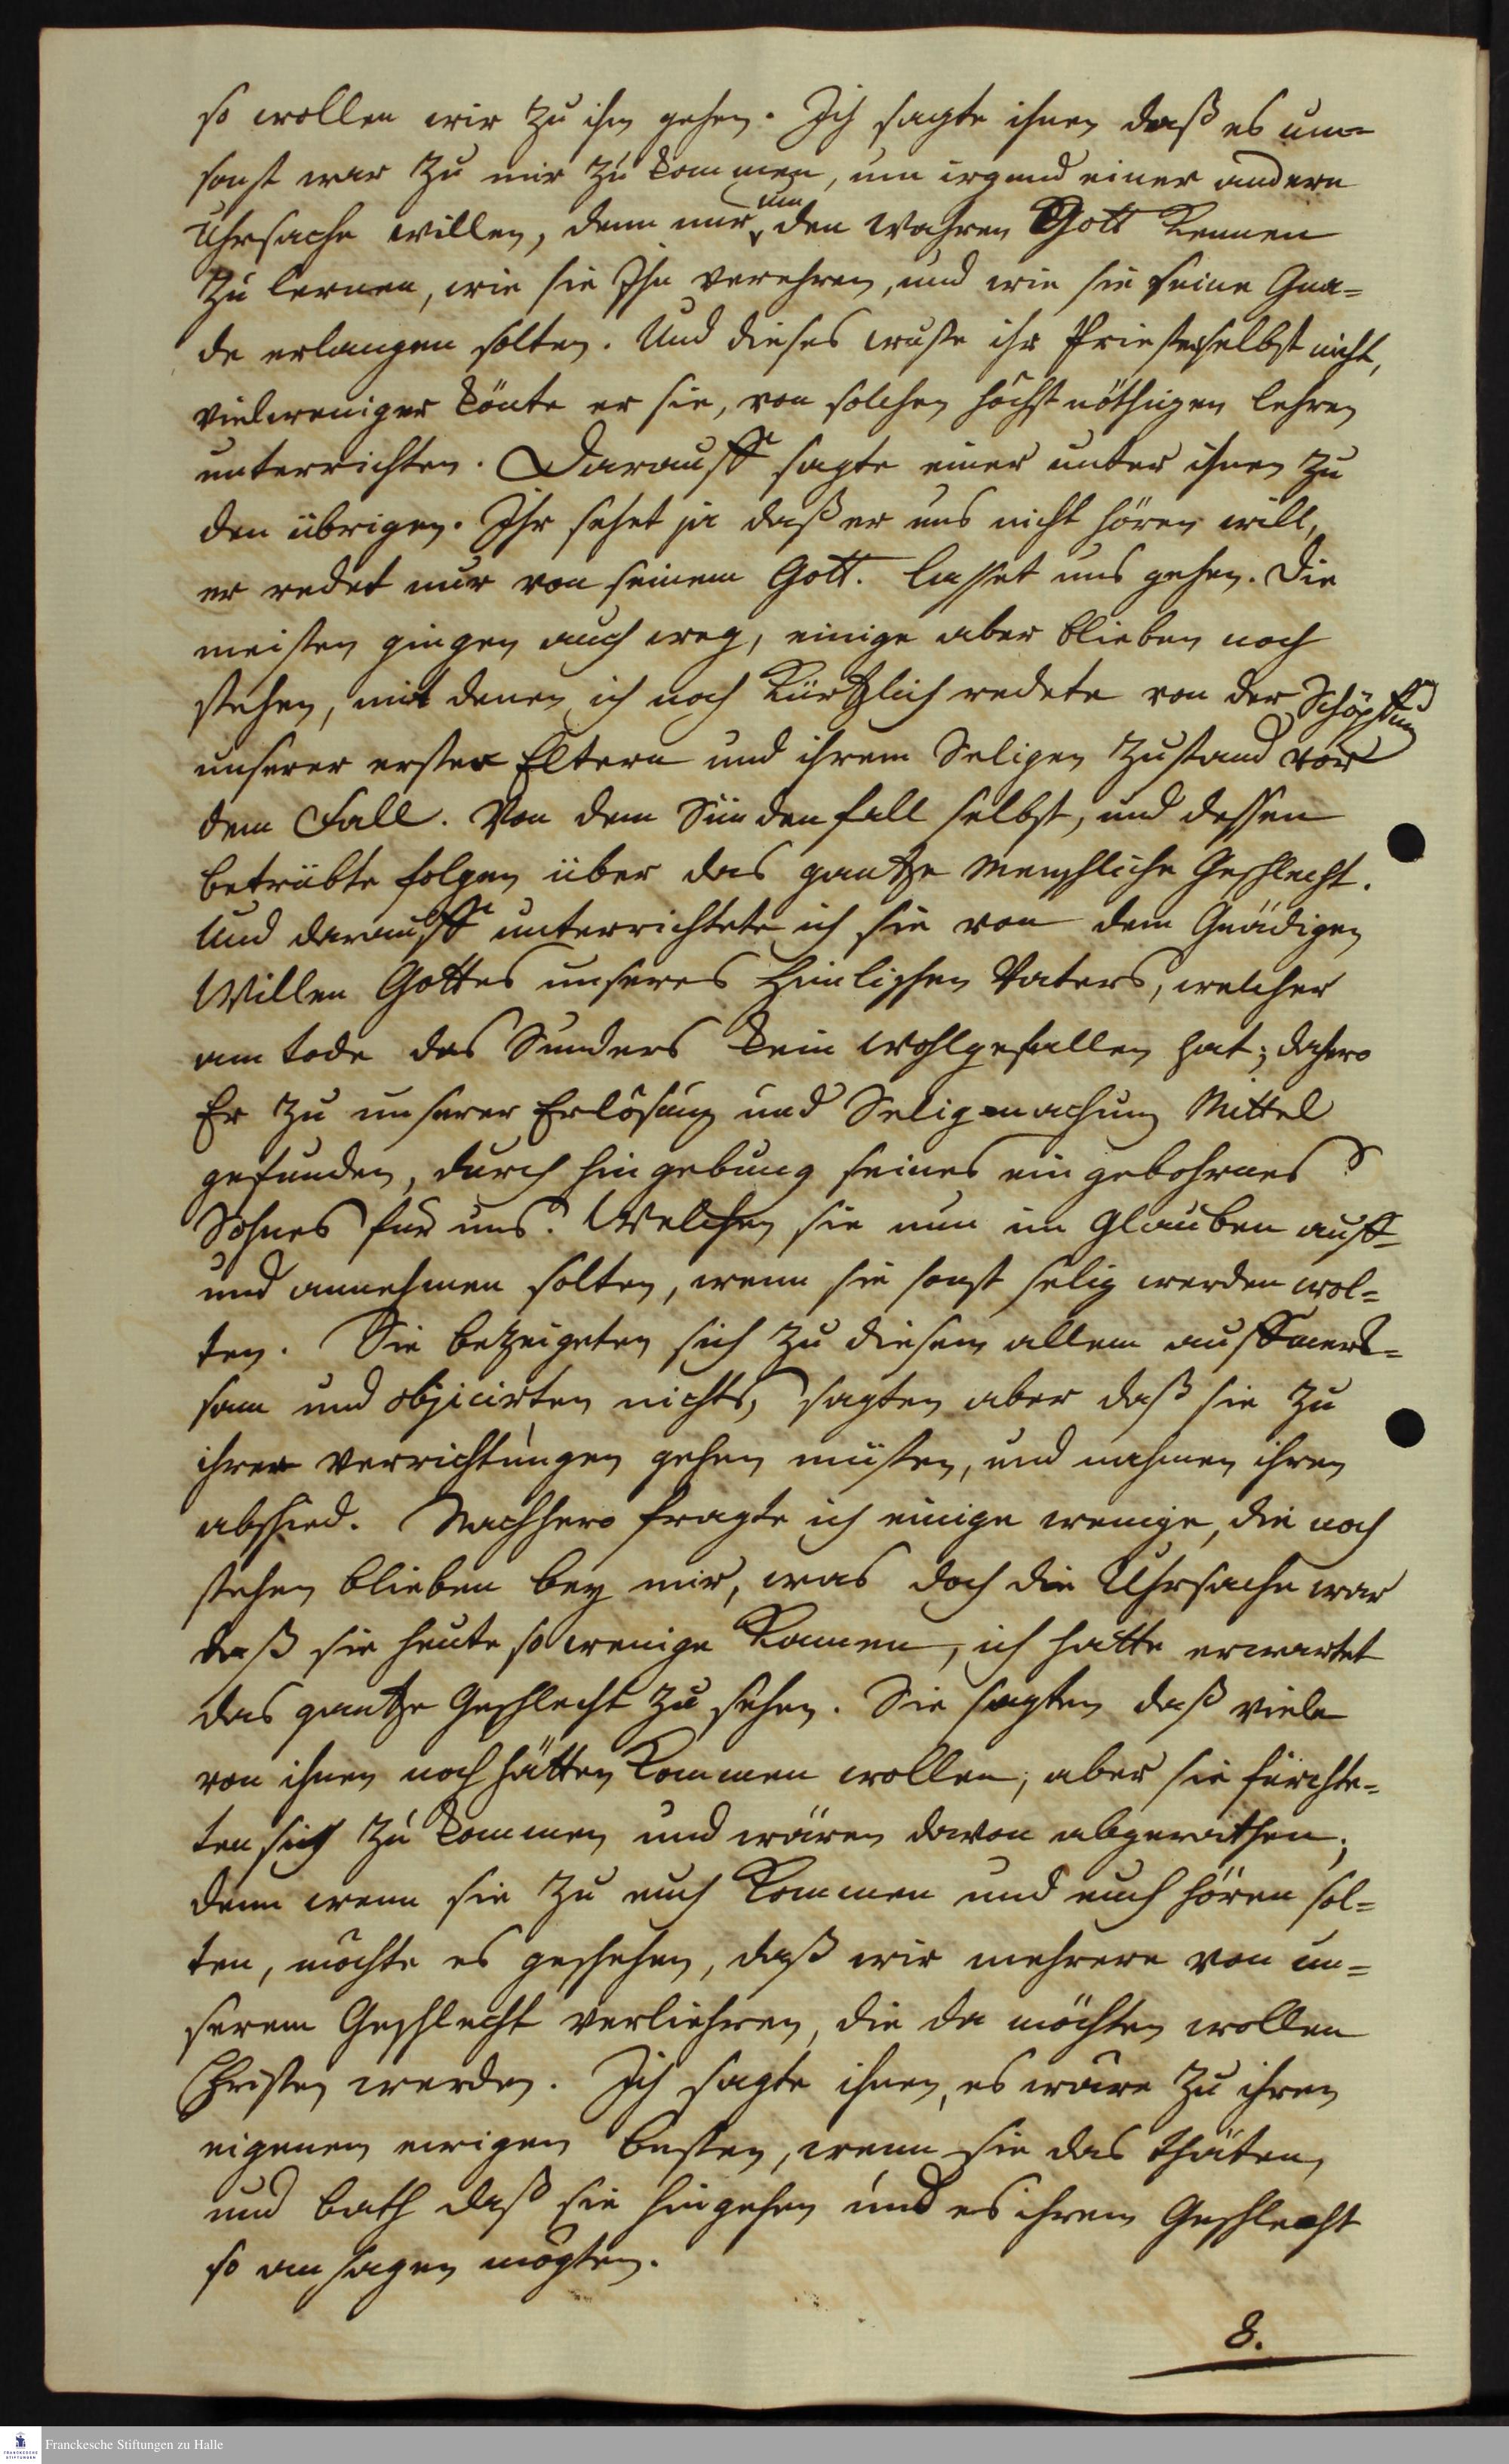 so wollen wir zu ihm gehen. Ich sagte ihnen daß es um-
sonst war zu mir zu kommen, um irgend einer andern
Uhrsache willen, denn nur um den wahren Gott kennen
zu lernen, wie sie Ihn verehren, und wie sie seine Gna=
de erlangen solten. Und dieses wuste ihr Priester selbst nicht,
vielweniger könte er sie, von solchen höchst nöthigen lehren
unterrichten. Darauff sagte einer unter ihnen zu
den übrigen. Ihr sehet ja daß er uns nicht hören will,
er redet nur von seinem Gott. lasset uns gehen. Die
meisten gingen auch weg, einige aber blieben noch
stehen, mit denen ich noch kürtzlich redete von der Schöpfung
unserer ersten Eltern und ihrem Seligen Zustand vor
dem Fall. Von dem Sündenfall selbst, und dessen
betrübte folgen über das gantze Menschliche Geschlecht.
Und darauff unterrichtete ich sie von dem Gnädigen
Willen Gottes unseres Himlischen Vaters, welcher
am tode des Sünders kein wohlgefallen hat; dahero
Er zu unserer Erlösung und Seligmachung Mittel
gefunden, durch hingebung seines eingebohrnes
Sohnes für uns. Welchen sie nun im Glauben auff-
und annehmen solten, wenn sie sonst selig werden wol=
ten. Sie bezeigeten sich zu diesem allem auffmerk=
sam und objicirten nichts, sagten aber daß sie zu
ihren verrichtungen gehen müsten, und nahmen ihren
abschied. Nachhero fragte ich einige wenige, die noch
stehen blieben bey mir, was doch die Uhrsache war
daß sie heute so wenige kamen, ich hatte erwartet
das gantze Geschlecht zu sehen. Sie sagten daß viele
von ihnen noch hätten kommen wollen; aber sie fürchte=
ten sich zu kommen und wären davon abgerathen;
denn wenn sie zu euch kommen und euch hören sol=
ten, möchte es geschehen, daß wir mehrere von un=
serem Geschlecht verliehren, die da möchten wollen
Christen werden. Ich sagte ihnen, es wäre zu ihren
eigenen ewigen besten, wenn sie das thäten,
und bath daß sie hingehen und es ihrem Geschlecht
so ansagen mögten.
8.
Franckesche Stiftungen zu Halle